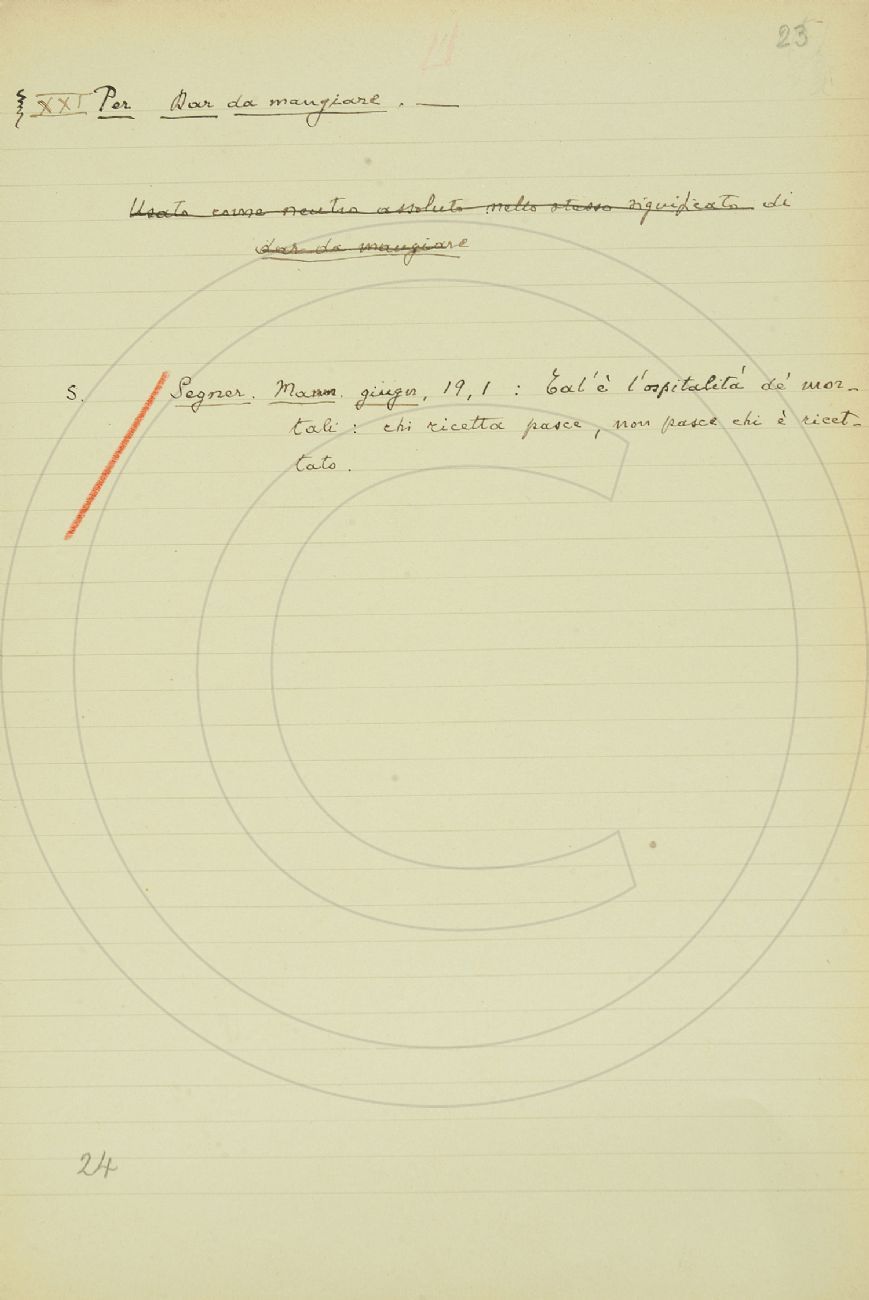 23
§ XXI Per Dar da mangiare. —
Usato come neutro assoluto nello stesso significato di
dar da mangiare
S. Segner. Mann. giugn, 19, 1 : Tal'è l'ospitalità de' mor-
tali : chi ricetta pasce, non pasce chi è ricet-
tato.
24